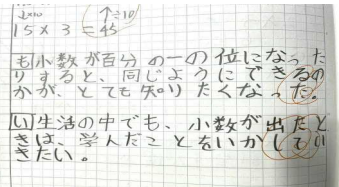 ↑÷10
15×3=45
も小数が百分の一の位になった
りすると、同じようにできるの
かが、とても知りたくなった。
い生活の中でも、小数が出たと
きは、学んだことをいかしてい
きたい。